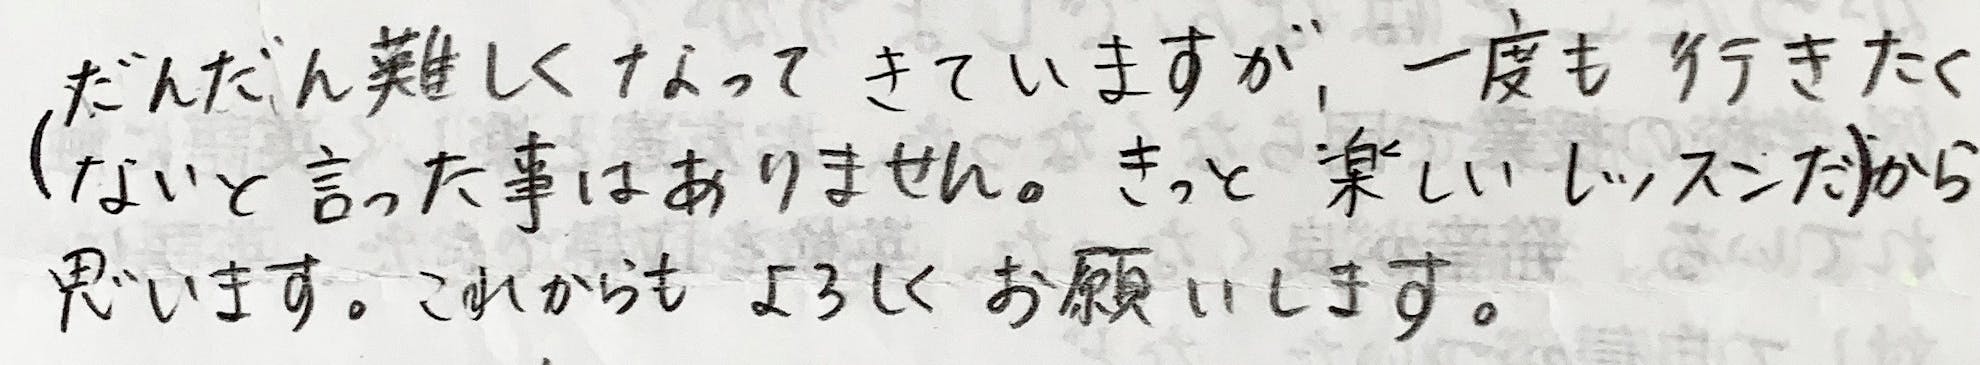 だんだん難しくなってきていますが、一度も行きたく
(ないと言った事はありません。きっと楽しいレッスンだ)から
思います。これからもよろしくお願いします。